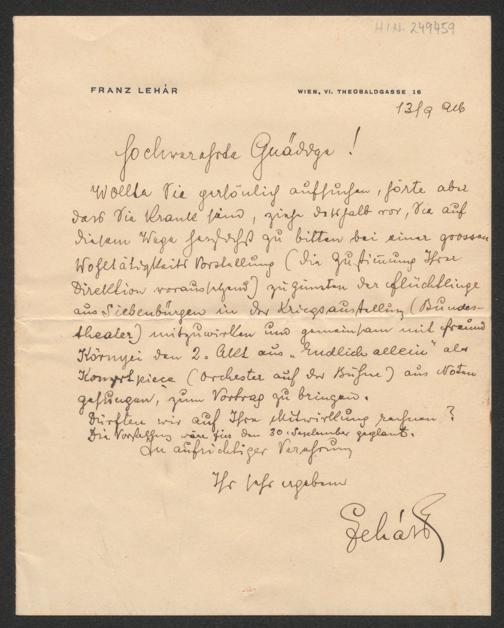 H.I.N. 249459
FRANZ LEHÁR
WIEN, VI. THEOBALDGASSE 16
13/9 916
Hochverehrte Gnädige!
Wollte Sie persönlich aufsuchen, hörte aber
dass Sie krank sind, ziehe deshalb vor, Sie auf
diesem Wege herzlichst zu bitten bei einer grossen
Wohltätigkeits Vorstellung (die Zustimmung Ihrer
Direktion voraussetzend) zu gunsten der Flüchtlinge
aus Siebenbürgen in der Kriegsausstellung (Bundes-
theater) mitzuwirken und gemeinsam mit Freund
Környei den 2. Akt aus „Endlich allein" als
Konzertpiece (Orchester auf der Bühne) aus Noten
gesungen, zum Vortrag zu bringen.
Dürften wir auf Ihre Mitwirkung rechnen?
Die Vorstellung wäre für den 30. September geplant.
In aufrichtiger Verehrung
Ihr sehr ergebener
Lehár